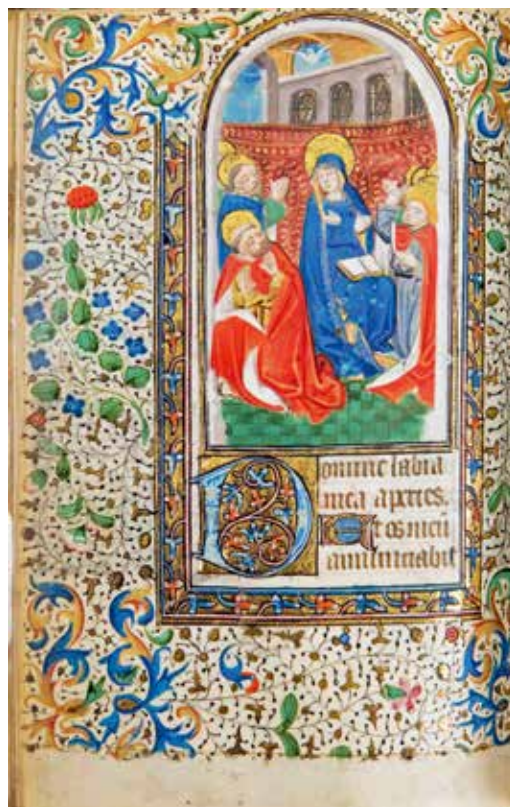 Domine labia
mea apries.
Et os meu
annunciabit